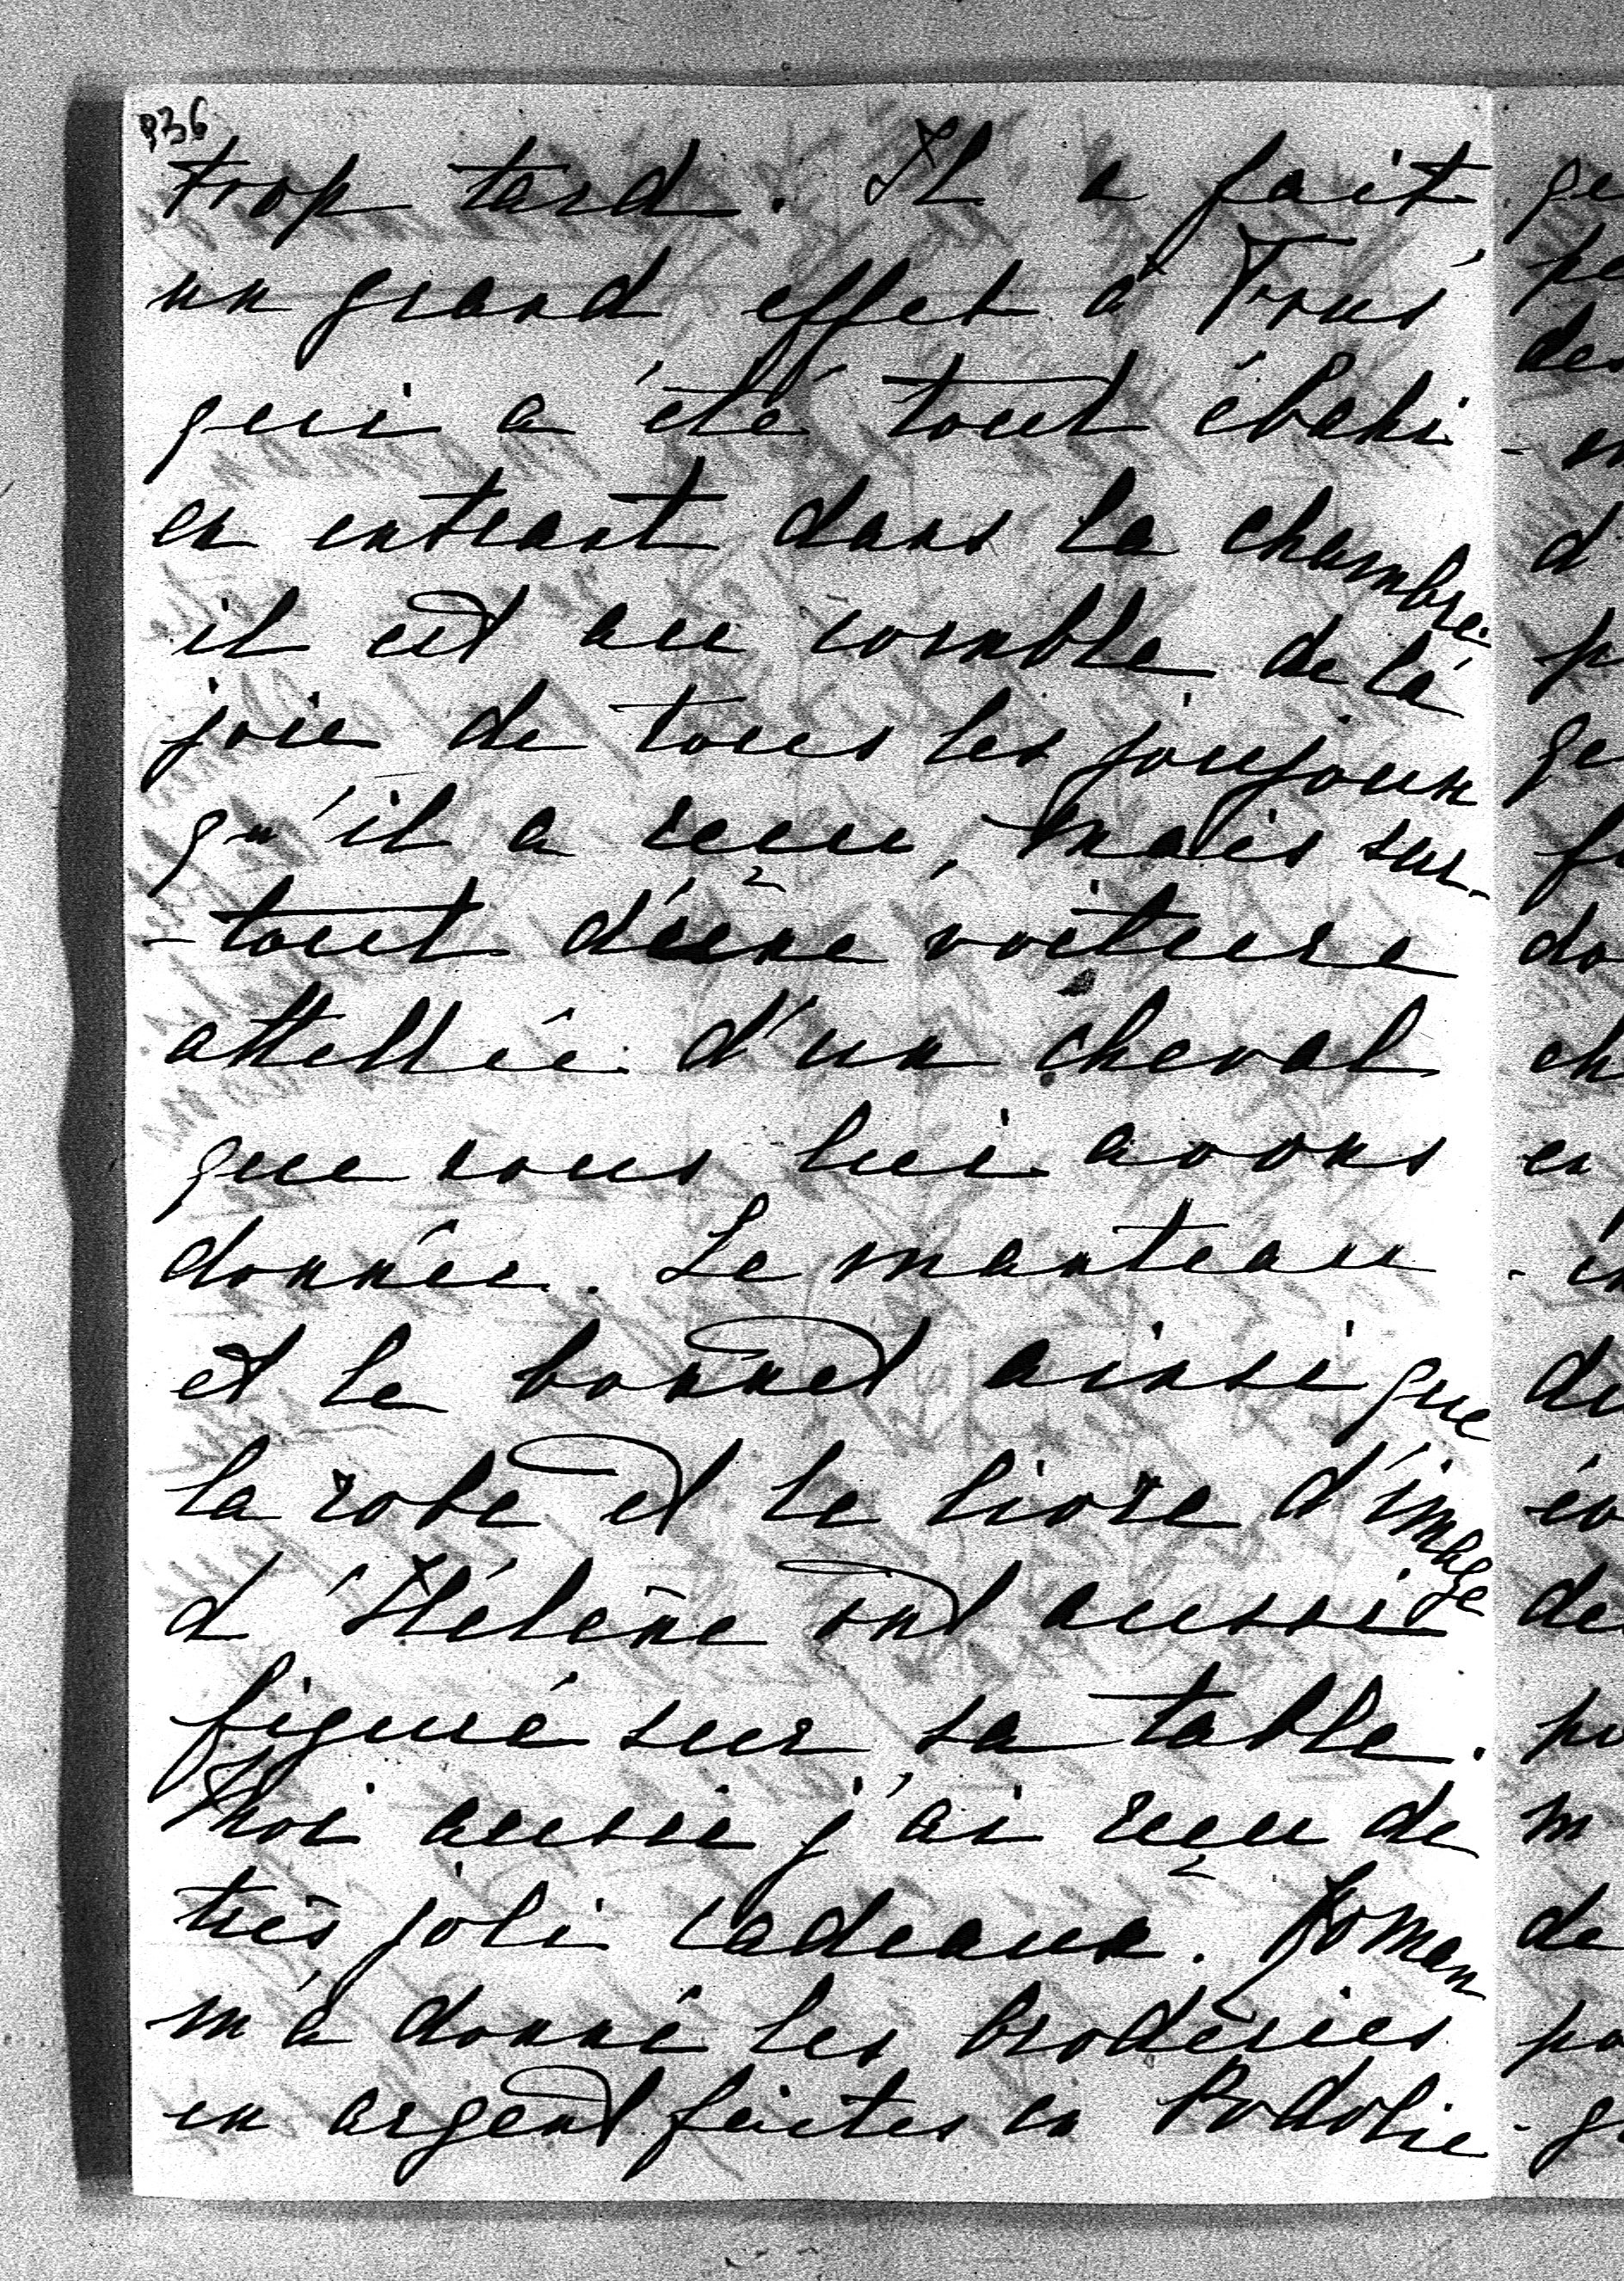 936
trop tard. Il a fait
un grand effet à Trus
qui a été tout ébahi
en entrant dans la chambre.
il est au comble de la
joie de tous les joujoux
qu'il a reçu, mais sur-
-tout d'une voiture
attellée d'un cheval
que nous lui avons
donnée. Le manteau
et le bonnet ainsi que
la robe et le livre d'image
d'Hélène ont aussi
figuré sur sa table.
Moi aussi j'ai reçu de
très joli cadeaux. Roman
m'a donné les broderies
en argent faites en Podolie